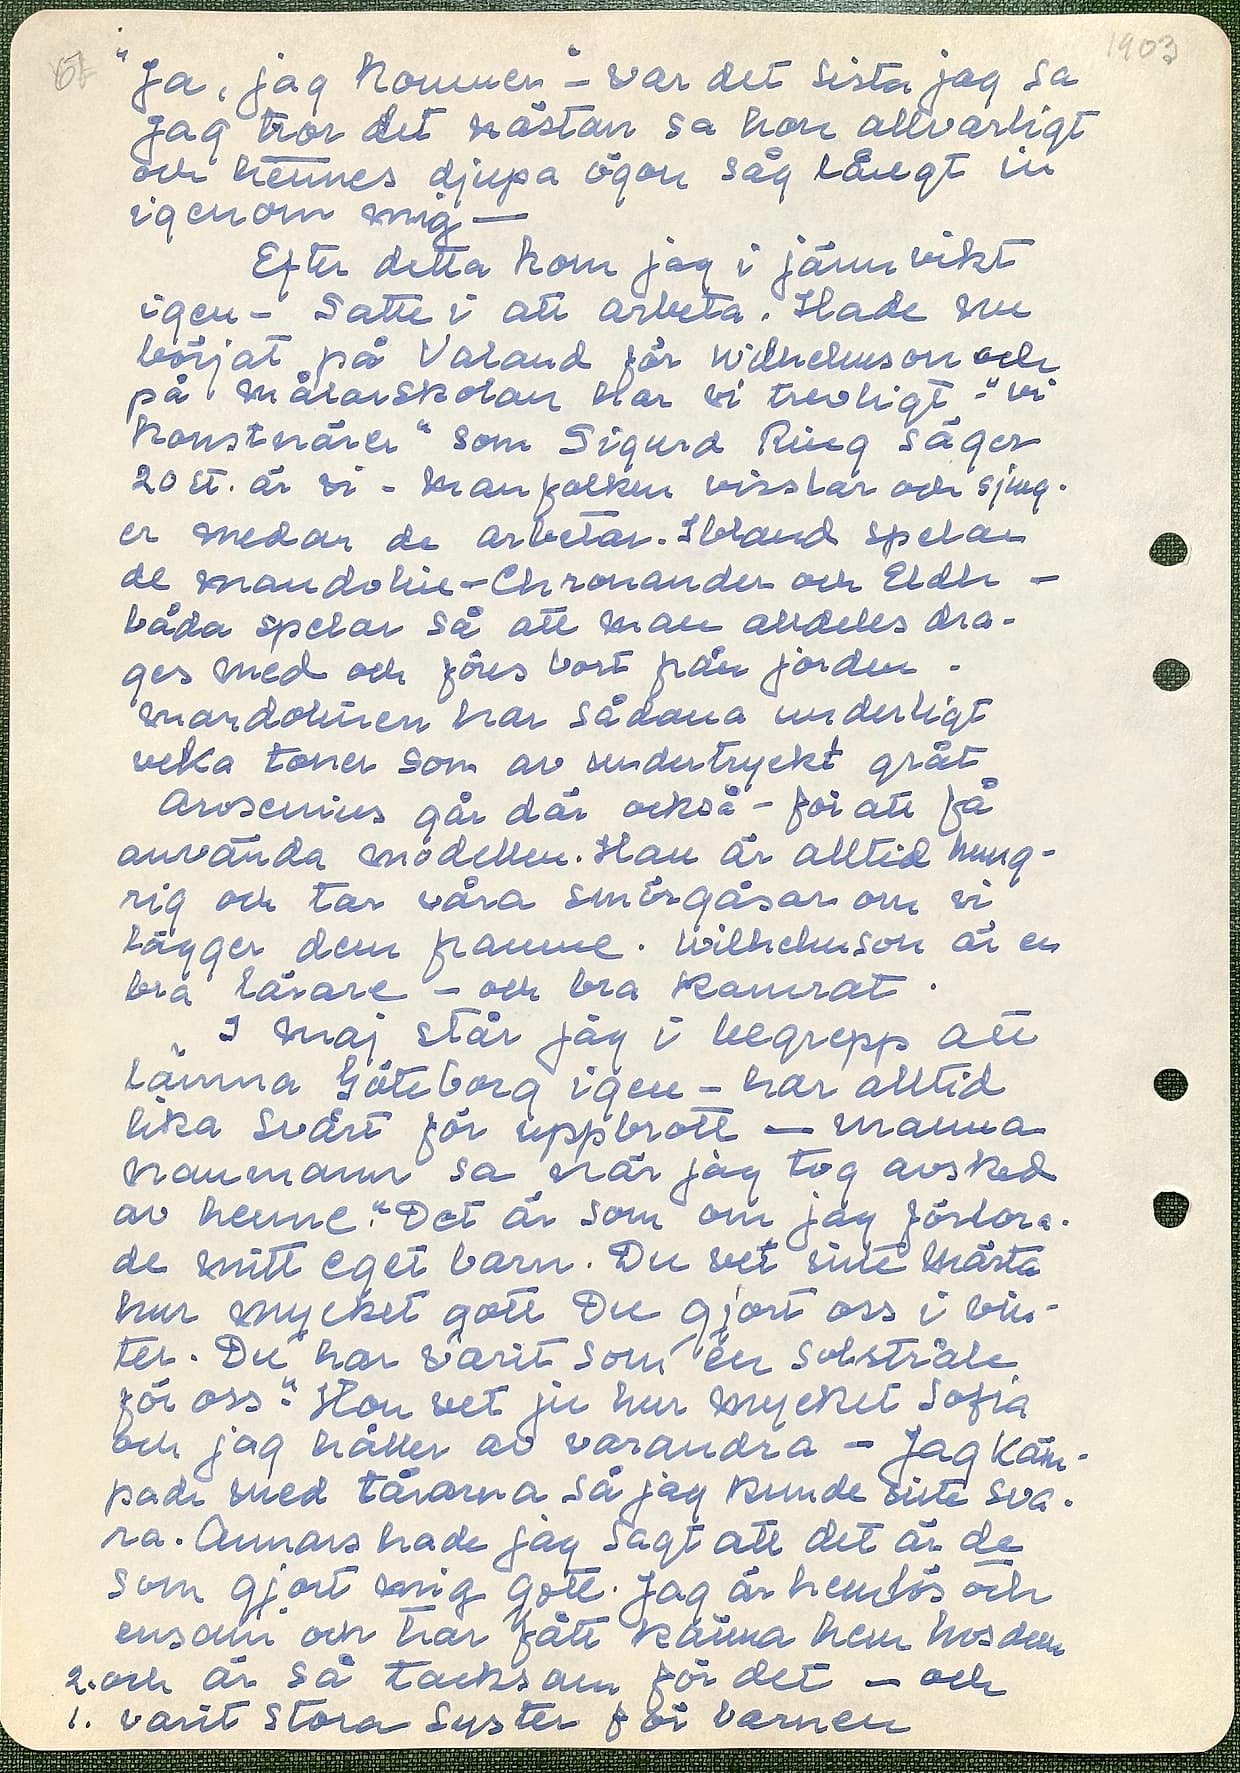 67 1903
"Ja, jag kommer" – var det sista jag sa
Jag tror det nästan sa hon allvarligt
och hennes djupa ögon såg långt in
igenom mig —
Efter detta kom jag i jämnvikt
igen – Satte i att arbeta. Hade nu
börjat på Valand för Wilhelmson och
på målarskolan har vi trevligt – "vi
konstnärer" som Sigurd Ring säger
20 st. är vi – manfolken visslar och sjung-
er medan de arbetar. Ibland spelar
de mandolin – Chronander och Eldh –
båda spelar så att man alldeles dra-
ges med och föres bort från jorden.
mandolinen har sådana underligt
veka toner som av undertryckt gråt
Arosenius går där också – för att få
använda modellen. Han är alltid hung-
rig och tar våra smörgåsar om vi
lägger dem framme. Wilhelmson är en
bra lärare – och bra kamrat.
I maj står jag i begrepp att
lämna Göteborg igen – har alltid
lika svårt för uppbrott — mamma
Naumann sa när jag tog avsked
av henne. "Det är som om jag förlora-
de mitt eget barn. Du vet inte Märta
hur mycket gott Du gjort oss i vin-
ter. Du har varit som en solstråle
för oss". Hon vet ju hur mycket Sofia
och jag håller av varandra – Jag käm-
pade med tårarna så jag kunde inte sva-
ra. Annars hade jag sagt att det är de
som gjort mig gott. Jag är hemlös och
ensam och har fått känna hem hos dem
2. och är så tacksam för det – och
1. varit stora syster för barnen